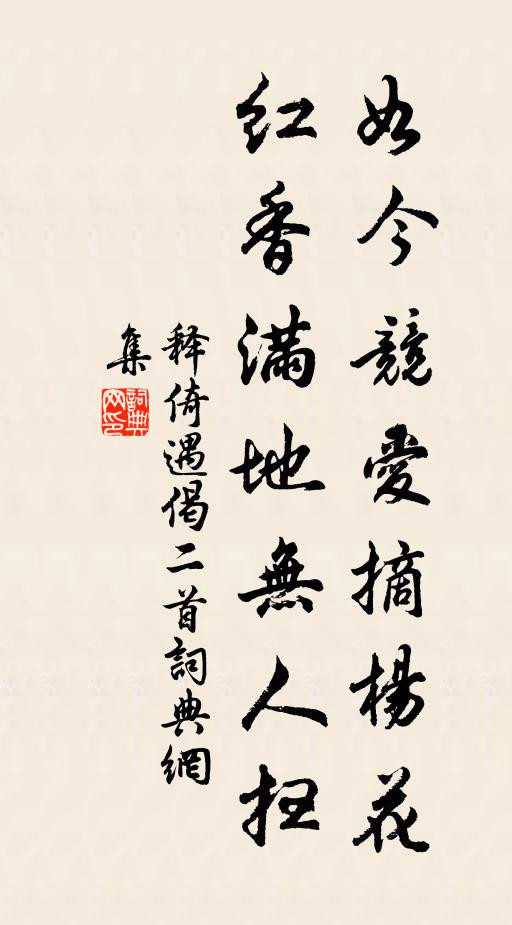 如今競愛摘楊花
紅香滿地無人扫
释倚遇偈二首詞典網
集
詞典網印